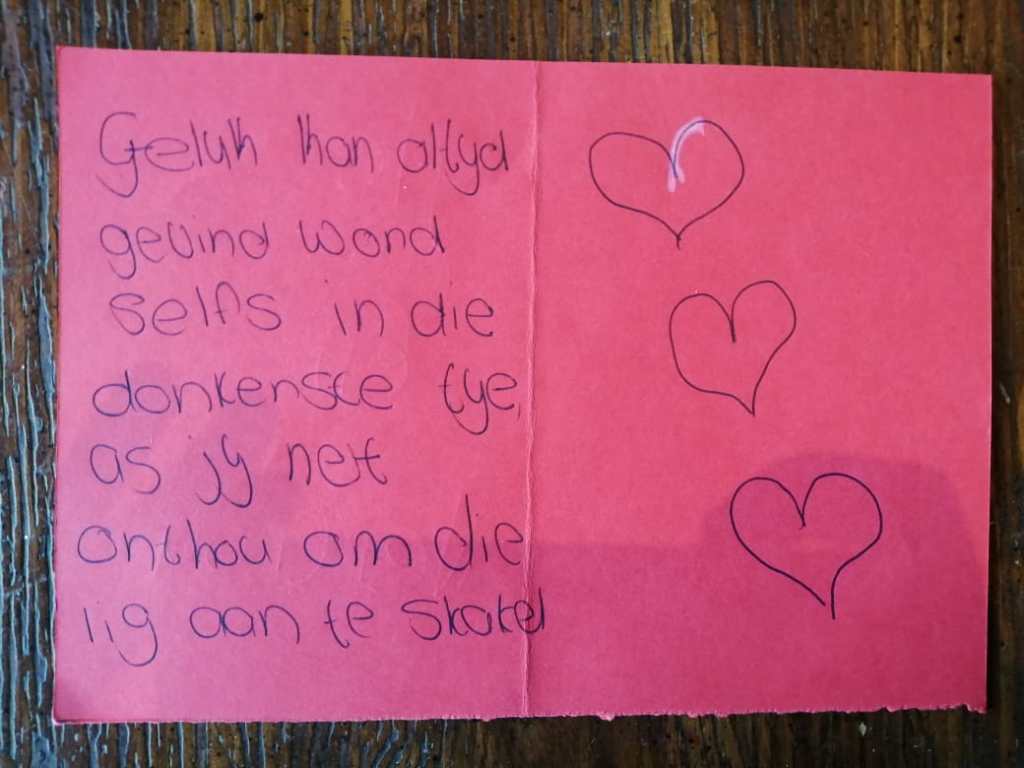 Geluk kan altyd
gevind word
selfs in die
donkerste tye,
as jy net
onthou om die
lig aan te skakel